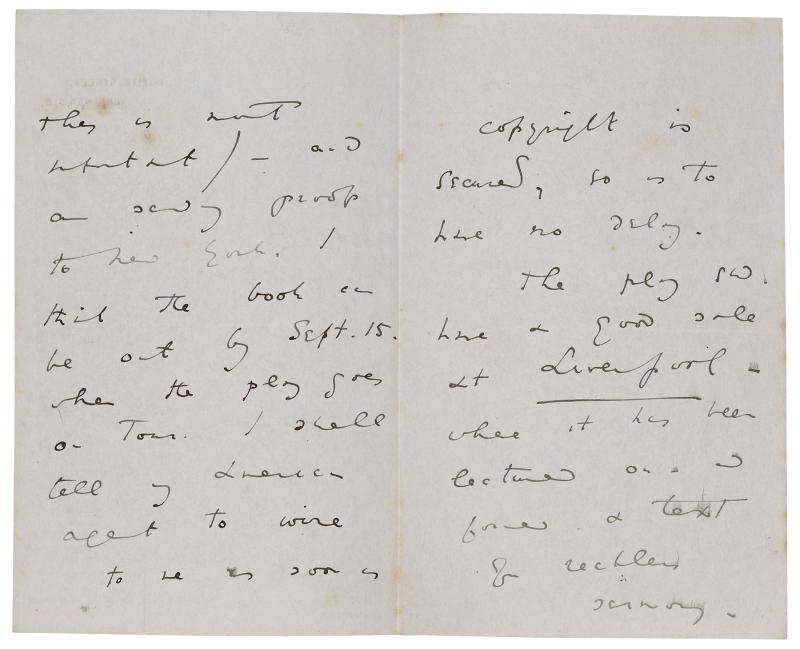 they is most
important) – and
am sending proofs
to New York. I
think the book can
be out by Sept. 15.
when the play goes
on Tour. I shall
tell my American
agent to wire
to me as soon as
copyright is
secured, so as to
have no delay.
The play shd.
have a good sale
at Liverpool –
where it has been
lectured on – and
formed a text
for reckless
sermons.